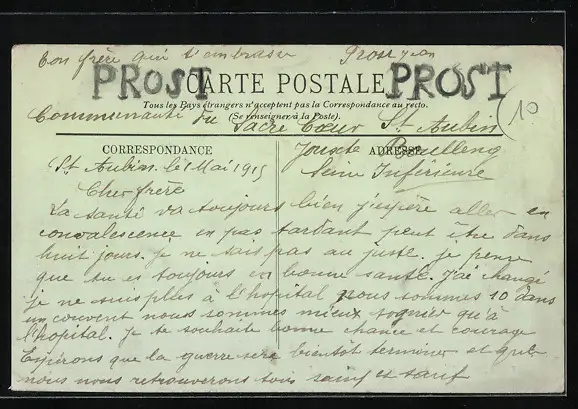 ton frère qui t'embrasse Prost Jean
PROST CARTE POSTALE PROST
Tous les Pays étrangers n'acceptent pas la Correspondance au recto.
(Se renseigner à la Poste).
10
Communauté du Sacré Cœur St Aubin
CORRESPONDANCE ADRESSE
Jouxte Boulleng
Seine Inférieure
St Aubin le 1 Mai 1915
Cher frère
La santé va toujours bien j'espère aller en
convalescence en pas tardant peut etre dans
huit jours. je ne sais pas au juste. je pense
que tu es toujours en bonne santé. J'ai changé
je ne suis plus à l'hopital nous sommes 10 dans
un couvent nous sommes mieux soignier qu'à
l'hopital. Je te souhaite bonne chance et courage
Espérons que la guerre sera bientôt terminer et que
nous nous retrouverons tous sains et sauf